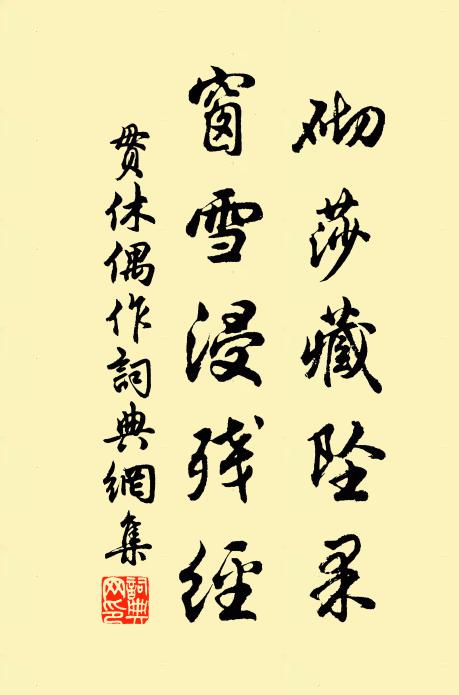 砌莎藏坠果
窗雪浸残经
贯休偶作词典網集
詞典网印